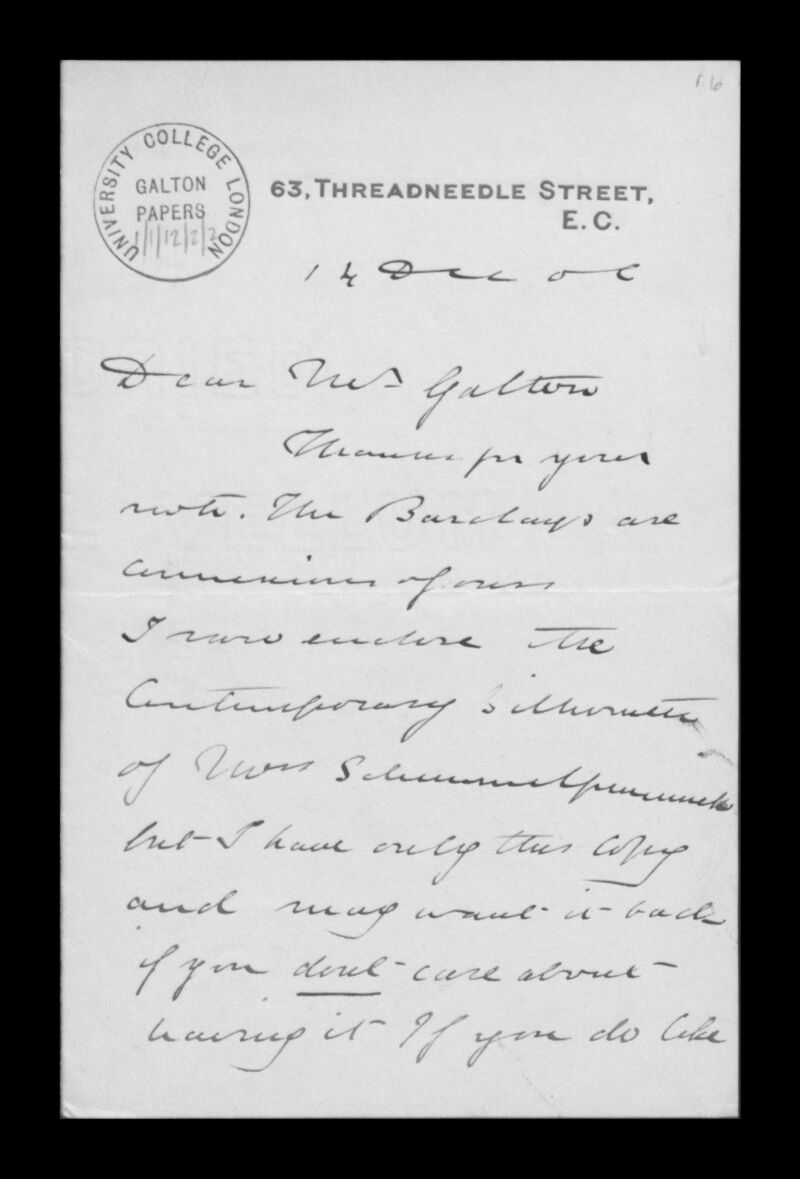 1.6
UNIVERSITY COLLEGE LONDON
GALTON
PAPERS
1/1/12/2/2
63, THREADNEEDLE STREET,
E.C.
14 Dec 06
Dear Mr Galton
Thanks for your
note. The Barclays are
connexions of ours
I now enclose the
Contemporary Silhouette
of Mrs Schimmelpenninck
but I have only this copy
and may want it back
if you dont care about
having it If you do like